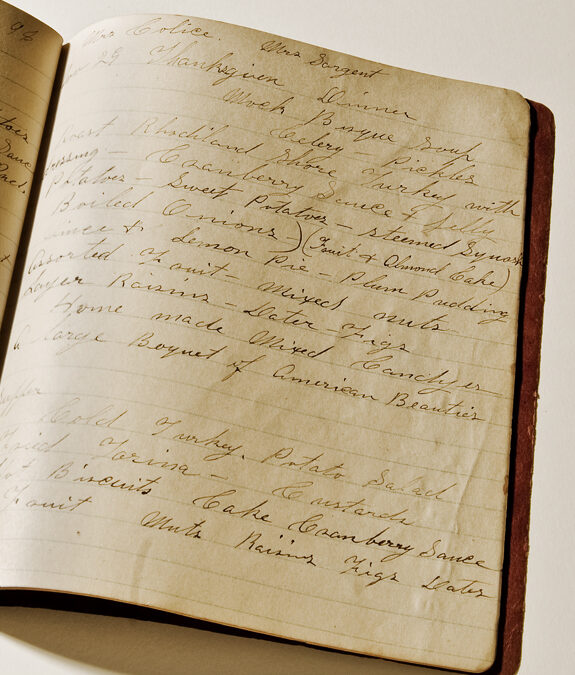 98
Mrs Colice. Mrs Sargent
29 Thanksgiven Dinner
Mock Bisque Soup
Celery – Pickles
Roast Rhodiland Shore Turkey with
Dressing – Cranberry Sauce & Jelly
Potatoes – Sweet Potatoes – Steemed Squash
Boiled Onions) (Fruit & Almond Cake)
Mince & Lemon Pie – Plum Pudding
Assorted Fruit Mixed nuts
Layer Raisins – Dater – Figs
Home made Mixed Candyes –
A large Boquet of American Beauties
Supper
Cold Turkey. Potato Salad
Farina – Custards
Hot Biscuits Cake Cranberry Sauce
Fruit Nuts Raisins Figs Dates